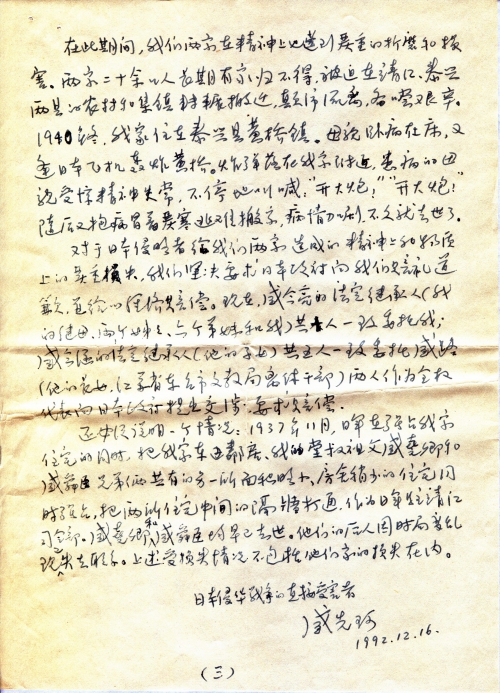 在此期间，我们两家在精神上也遭到严重的折磨和损
害。两家二十余口人长期有家归不得，被迫在靖江、泰兴
两县的农村和集镇辗转搬迁，颠沛流离，备尝艰辛。
1940年冬，我家住在泰兴县黄桥镇。母亲卧病在床，又
逢日本飞机轰炸黄桥。炸弹落在我家附近，患病的母
亲受惊精神失常，不停地叫喊："开大炮！""开大炮！"
随后又抱病冒着严寒逃难搬家，病情加剧，不久就去世了。
对于日本侵略者给我们两家造成的精神上和物质
上的严重损失，我们坚决要求日本政府向我们赔礼道
歉，并给以经济赔偿。现在，盛今高的法定继承人（我
的继母、两个姊姊、六个弟妹和我）共十人一致委托我；
盛今涵的法定继承人（他的子女）共五人一致委托盛璐
（他的长女，江苏省东台市文教局离休干部）两人作为全权
代表向日本政府提出交涉，要求赔偿。
还必须说明一个情况：1937年11月，日军在强占我家
住宅的同时，把我家东边邻居、我的堂叔祖父盛莲卿和
盛莼臣兄弟俩共有的另一所面积略小、房舍稍少的住宅同
时强占，把两所住宅中间的隔墙打通，作为日军驻靖江
司令部。盛莲卿和盛莼臣均早已去世。他们的后人因时局紊乱
现已失去联系。上述受损失情况不包括他们家的损失在内。
日本侵华战争的直接受害者
盛先珂
1992.12.16.
（三）